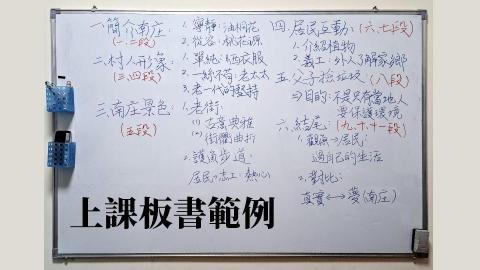 一.簡介南庄:
(一.二段)
1. 寧靜:油桐花
2. 從容:桃花源
二.村人形象:
(三.四段)
1. 單純:晒衣服
2. 一絲不苟:老太太
3. 老一代的堅持
三.南庄景色:
(五段)
1. 老街
(1) 古蔥典雅
(2) 街衢曲折
2. 護魚步道:
居民→志工:熱心
四.居民互動:(六.七段)
1. 介紹植物
2. 義工:外人了解家鄉
五.父子撿垃圾:(八段)
⇒目的:不是只有當地人
要保護環境
六.結尾:(九.十.十一段)
1. 觀眾→居民:
過自己的生活
2. 對比:
真實←→夢(南庄)
上課板書範例